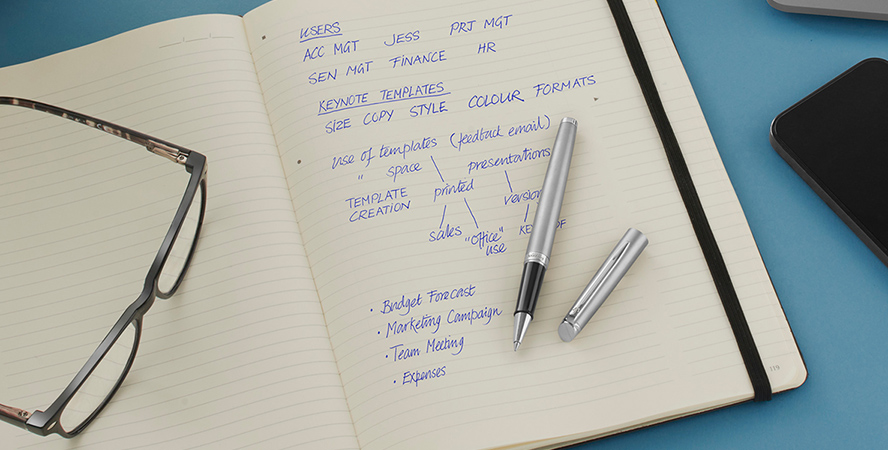 USERS
ACC MGT JESS PRJ MGT
SEN MGT FINANCE HR
KEYNOTE TEMPLATES
SIZE COPY STYLE COLOUR FORMATS
use of templates (feedback email)
" space presentations
TEMPLATE printed version
CREATION
sales "office" use
• Budget Forecast
• Marketing Campaign
• Team Meeting
• Expenses
119